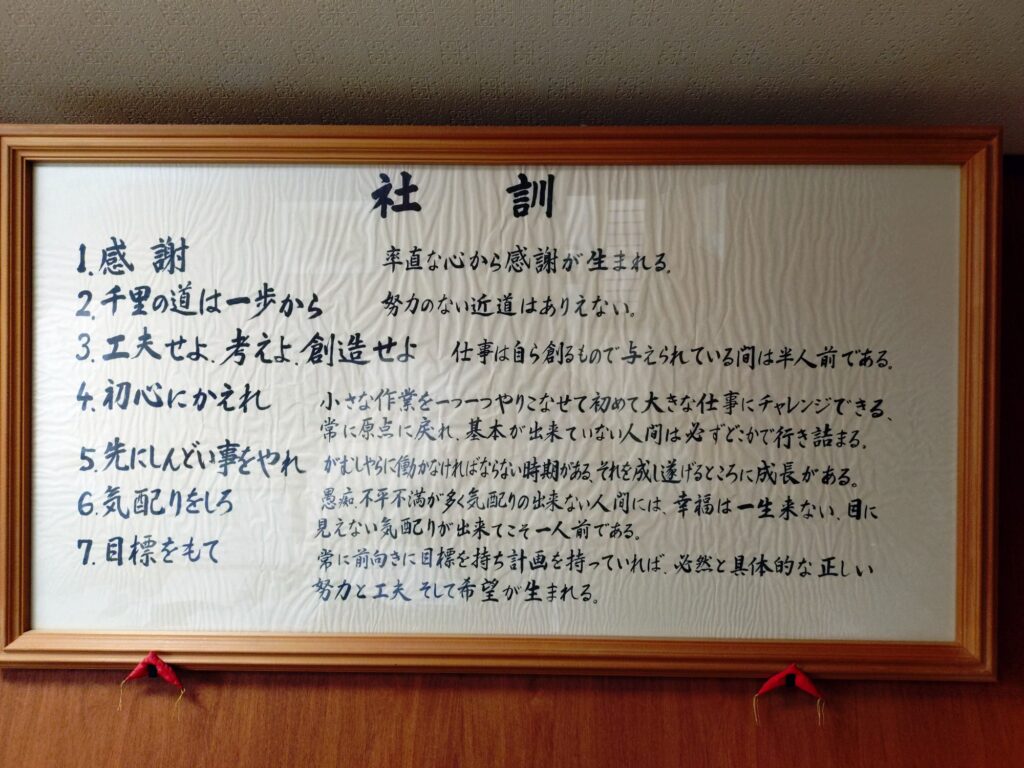 社 訓
1.感 謝 率直な心から感謝が生まれる。
2.千里の道は一歩から 努力のない近道はありえない。
3.工夫せよ、考えよ、創造せよ 仕事は自ら創るもので与えられている間は半人前である。
4.初心にかえれ 小さな作業を一つ一つやりこなせて初めて大きな仕事にチャレンジできる、
常に原点に戻れ、基本が出来ていない人間は必ずどこかで行き詰まる。
5.先にしんどい事をやれ がむしゃらに働かなければならない時期がある、それを成し遂げるところに成長がある。
6.気配りをしろ 愚痴、不平不満が多く気配りの出来ない人間には、幸福は一生来ない、目に
見えない気配りが出来てこそ一人前である。
7.目標をもて 常に前向きに目標を持ち計画を持っていれば、必然と具体的な正しい
努力と工夫 そして希望が生まれる。